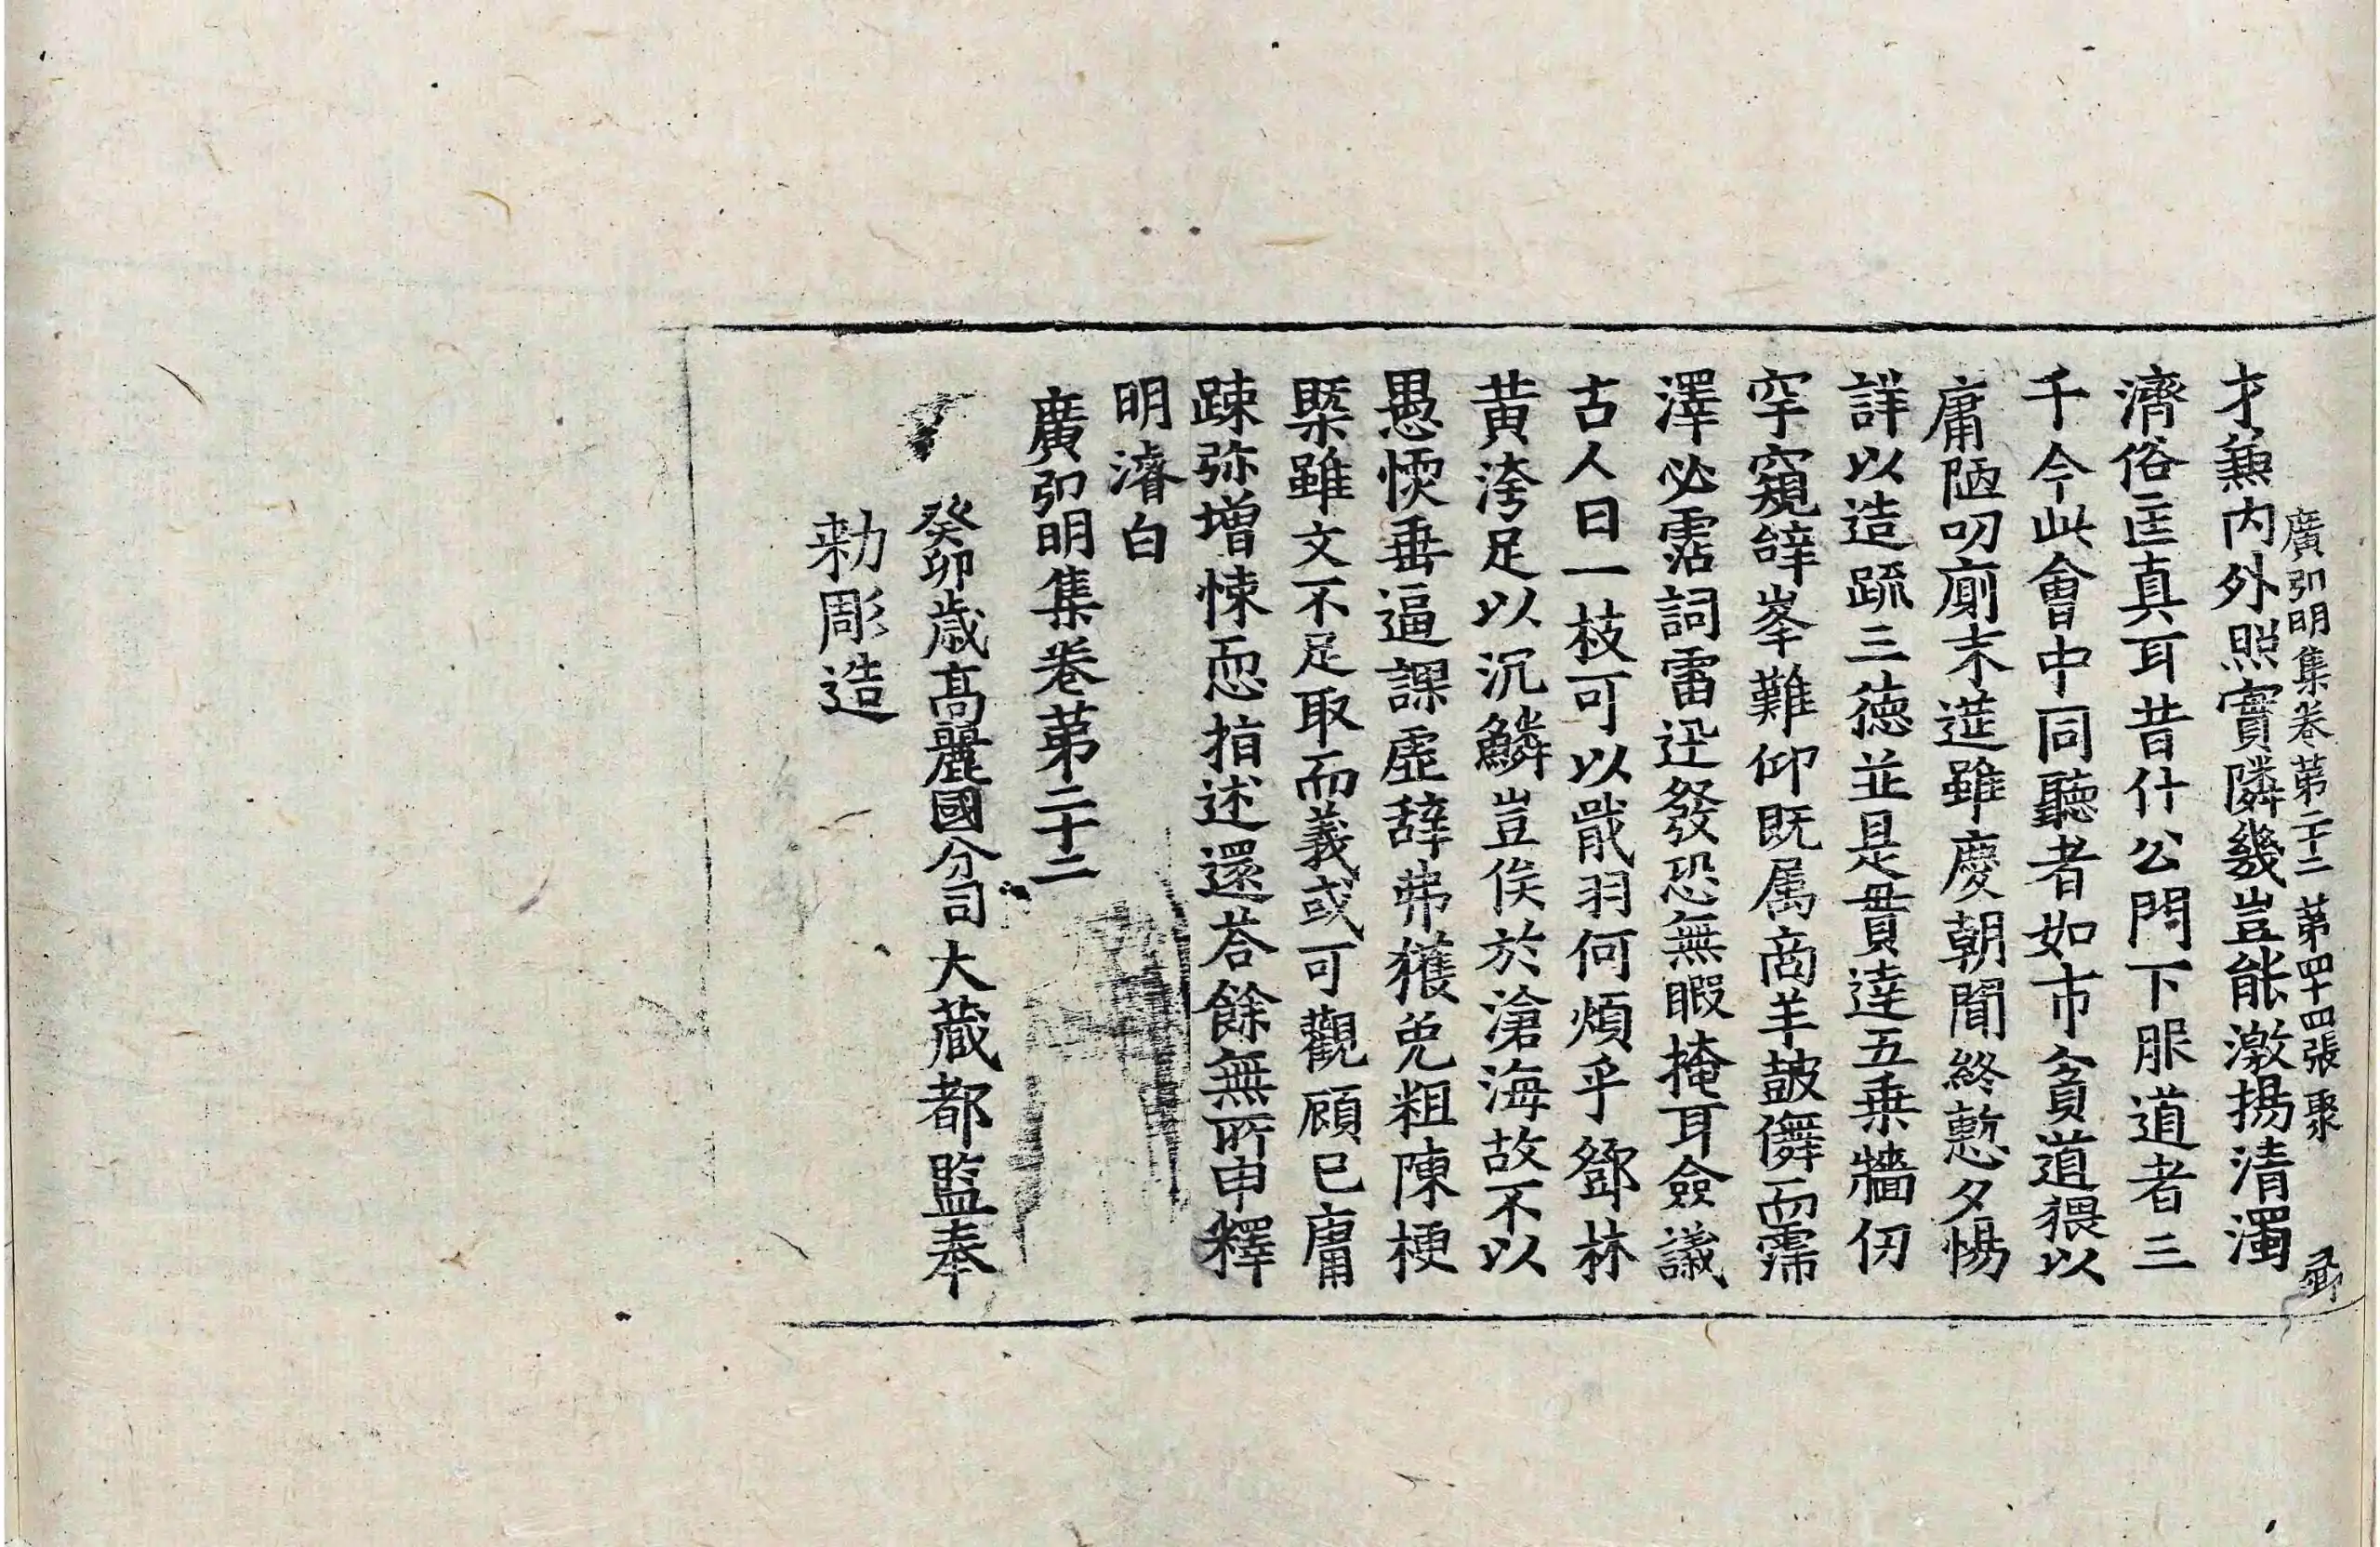 廣弘明集卷第二十二 第四十四張 聚
才兼内外照實隣幾豈能激揚清濁
濟俗匡真耳昔什公門下服道者三
千今此會中同聽者如市貧道猥以
庸陋叨廁末筵雖慶朝聞終慙夕惕
詳以造疏三德並是貫達五乘牆仞
罕窺辭峯難仰既属商羊鼓儛而霈
澤必霑詞雷迅發恐無暇掩耳僉議
古人曰一枝可以戢羽何煩乎鄧林
黄洿足以沉鱗豈俟於滄海故不以
愚愞垂逼課虛辞弗獲免粗陳梗
槩雖文不足取而義或可觀顧已庸
踈弥增悚恧指述還荅餘無所申釋
明濬白
廣弘明集卷第二十二
癸卯歲高麗國分司大藏都監奉
勑彫造